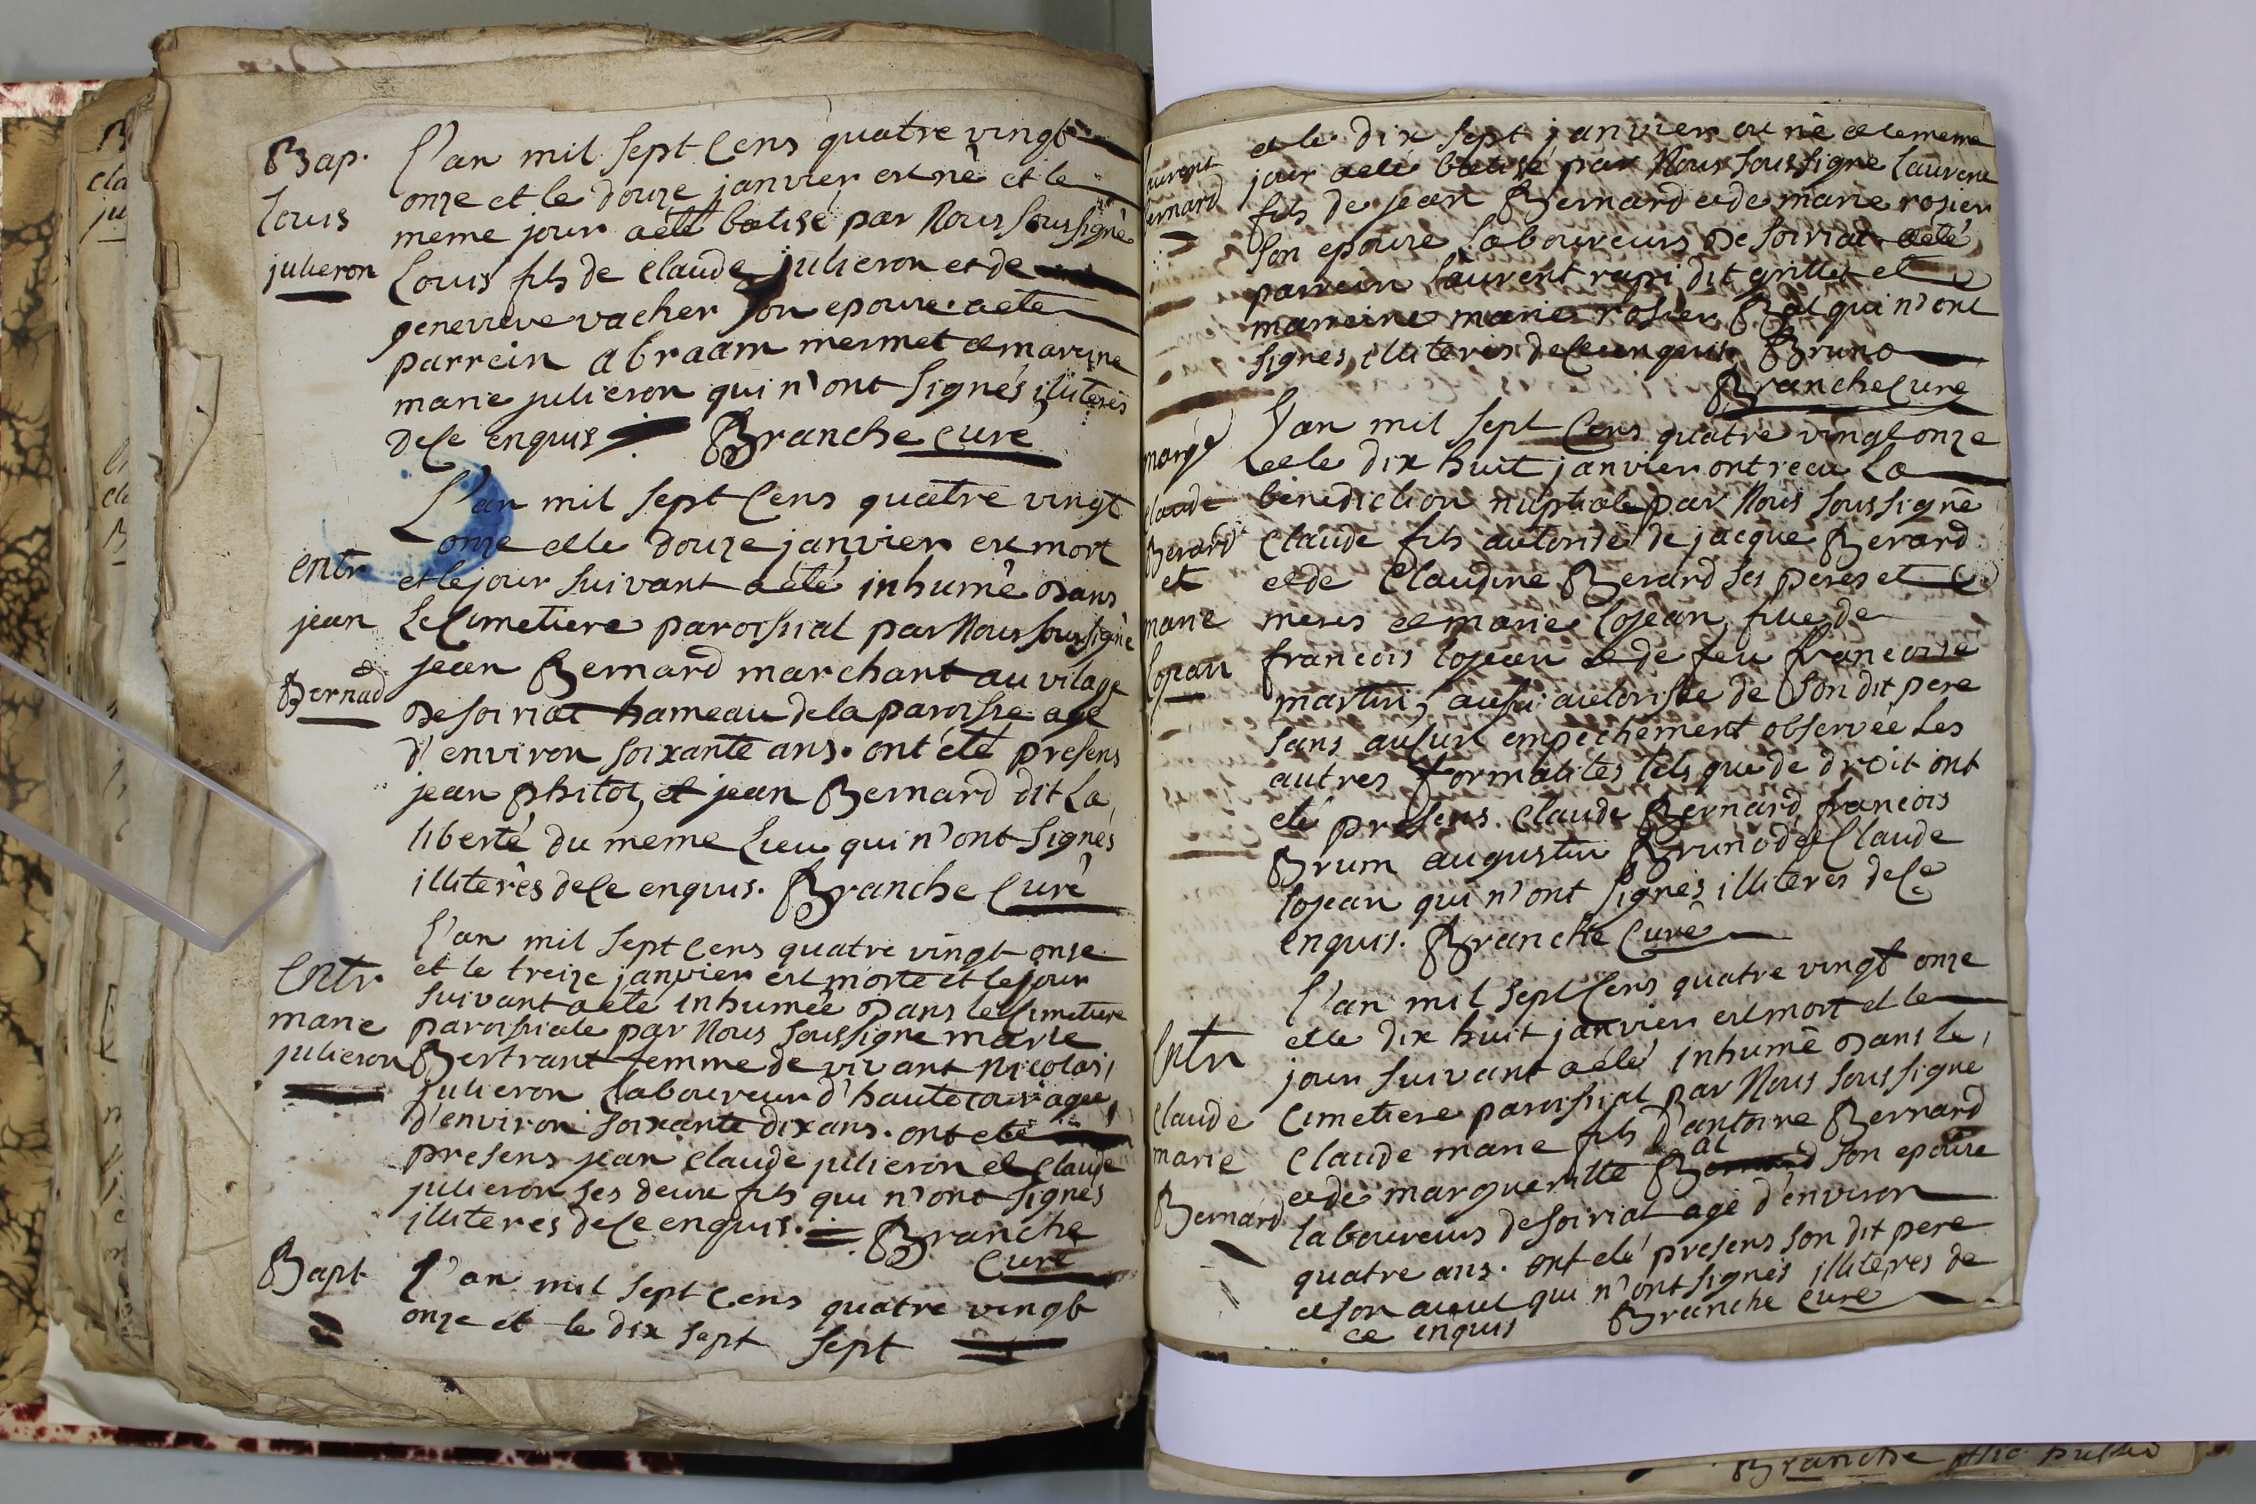 Bap.
Louis
julieron
L'an mil sept Cens quatre vingt
onze et le douze janvier est né et le
meme jour aété batisé par Nous soussigné
Louis fils de Claude julieron et de
genevieve vacher son epouse. aété
parrein abraam mermet et mareine
marie julieron qui n'ont signés illiteres
de Ce enquis Branche Curé
entr
jean
Bernad
L'an mil sept Cens quatre vingt
onze et le douze janvier est mort
et le jour suivant aété inhumé dans
Le Cimetiere paroissial par Nous soussigné
jean Bernard marchant au vilage
de soiriat hameau de la paroisse agé
d'environ soixante ans. ont été presens
jean philot et jean Bernard dit La
liberté du meme Lieu qui n'ont signés
illiterès de Ce enquis. Branche Curé
Entr
marie
julieron
L'an mil sept Cens quatre vingt onse
et le treize janvier est morte et le jour
suivant aété inhumée dans le Cimetiere
paroissiale par Nous soussigné marie
Bertrant femme de vivant Nicolas
julieron Laboureur d'hautecour agée
d'environ soixante dix ans. ont eté
presens jean Claude julieron et Claude
julieron ses deux fils qui n'ont signés
illiteres de Ce enquis. Branche
Curé
Bapt
L'an mil sept Cens quatre vingt
onze et le dix sept sept
Laurent
Bernard
et le dix sept janvier est né et le meme
jour aété batisé par Nous soussigné Laurent
fils de jean Bernard et de marie rosier
son epouse Laboureurs de soiriat aeté
parrein Laurent rapi dit grillet et
marreine marie rosier Bal qui n'ont
signés illiteres de Ce enquis Bruno
Branche Curé
marge
Claude
Berard
et
marie
lojean
L'an mil sept Cens quatre vingt onze
et le dix huit janvier ont recu La
bénédiction nuptiale par Nous soussigné
Claude fils autorisé de jacque Berard
et de Claudine Berard ses peres et
meres et marie lojean fille de
francois lojean et de feu francoise
martin, aussi autorisée de son dit pere
sans aucun empechement observée Les
autres formalités tels que de droit ont
eté presens. Claude Bernard francois
Brum augustin Bruno et Claude
lojean qui n'ont signés illiteres de Ce
enquis. Branche Curé
Entr
Claude
marie
Bernard
L'an mil sept Cens quatre vingt onze
et le dix huit janvier est mort et le
jour suivant aété inhumé dans le
Cimetiere paroissial par Nous soussigné
Claude marie fils d'antoine Bernard
et de margueritte Bal son epouse
laboureurs de soiriat agé d'environ
quatre ans. ont été presens son dit pere
et son aieul qui n'ont signés illiteres de
ce enquis Branche curé